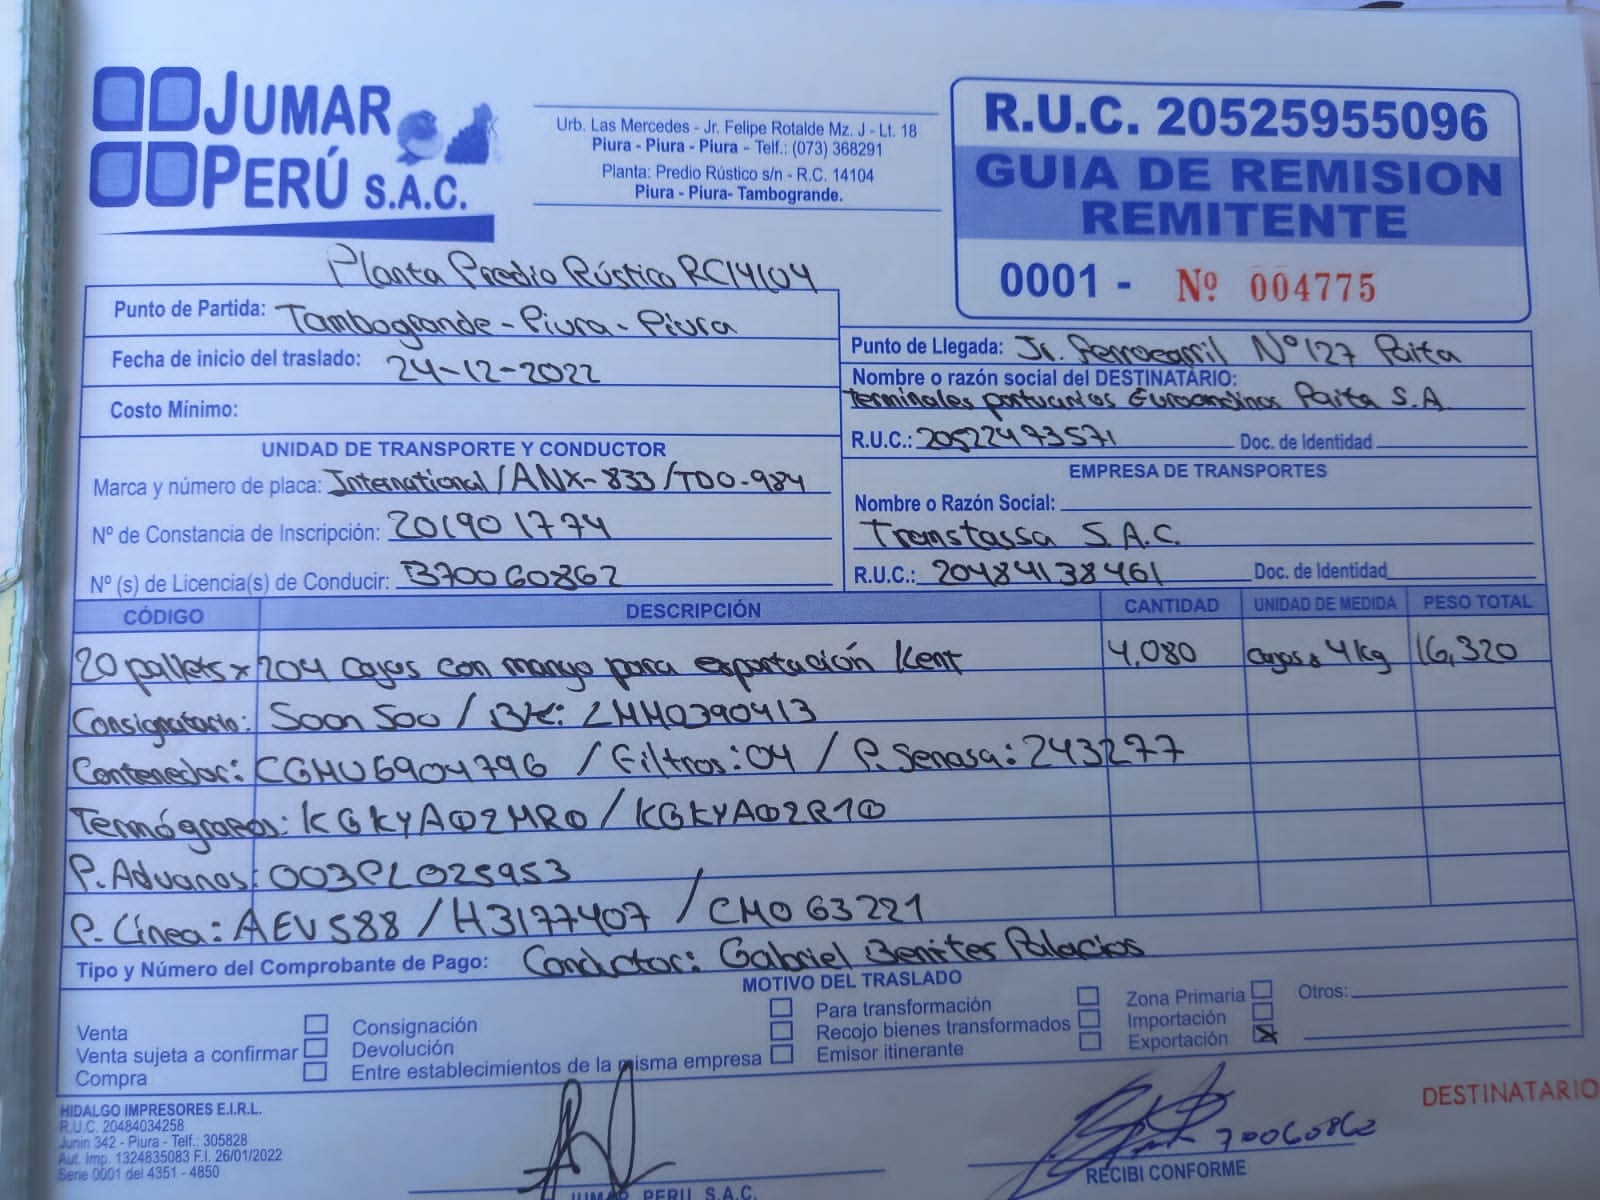 JUMAR
PERÚ S.A.C.
Urb. Las Mercedes - Jr. Felipe Rotalde Mz. J - Lt. 18
Piura - Piura - Piura - Telf.: (073) 368291
Planta: Predio Rústico s/n - R.C. 14104
Piura - Piura- Tambogrande.
R.U.C. 20525955096
GUIA DE REMISION
REMITENTE
0001 - Nº 004775
Planta Predio Rústico RC14104
Punto de Partida: Tambogrande - Piura - Piura
Fecha de inicio del traslado: 24-12-2022
Costo Mínimo:
Punto de Llegada: Jr. Ferrocarril Nº127 Paita
Nombre o razón social del DESTINATARIO:
Terminales portuarios Euroandinos Paita S.A.
R.U.C.: 20522473571 Doc. de Identidad
UNIDAD DE TRANSPORTE Y CONDUCTOR
Marca y número de placa: International/ANX-833/TDO-984
Nº de Constancia de Inscripción: 201901774
Nº (s) de Licencia(s) de Conducir: B70060862
EMPRESA DE TRANSPORTES
Nombre o Razón Social:
Transtassa S.A.C.
R.U.C.: 20484138461 Doc. de Identidad
CÓDIGO DESCRIPCIÓN CANTIDAD UNIDAD DE MEDIDA PESO TOTAL
20 pallets x 204 cajas con mango para exportación Kent 4,080 cajas x 4kg 16,320
Consignatario: Soon Soo / BK: LMM0390413
Contenedor: CGMU6904796 / Filtros: 04 / P. Senasa: 243277
Termógrafos: KGKYA02MR0 / KGKYA02R10
P. Aduanas: 003PL025953
P. Línea: AEV588 / H3177407 / CMO63221
Tipo y Número del Comprobante de Pago: Conductor: Gabriel Benites Palacios
MOTIVO DEL TRASLADO
Venta
Venta sujeta a confirmar
Compra
Consignación
Devolución
Entre establecimientos de la misma empresa
Para transformación
Recojo bienes transformados
Emisor itinerante
Zona Primaria
Importación
Exportación X
Otros:
HIDALGO IMPRESORES E.I.R.L.
R.U.C. 20484034258
Junin 342 - Piura - Telf.: 305828
Aut. Imp. 1324835083 F.I. 26/01/2022
Serie 0001 del 4351 - 4850
JUMAR PERU S.A.C.
70060862
RECIBI CONFORME
DESTINATARIO